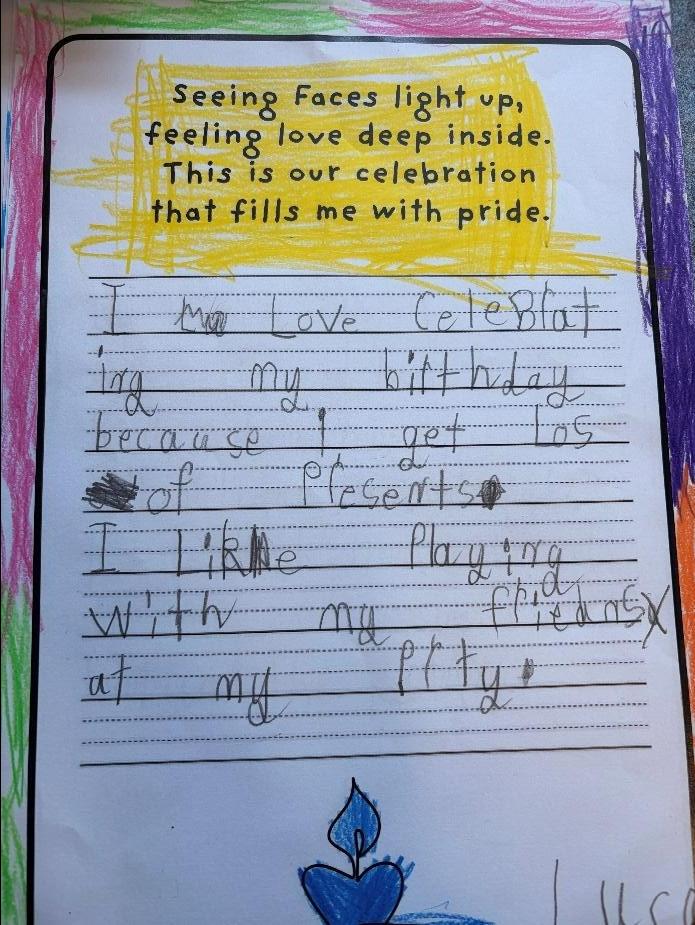 Seeing Faces light up,
feeling love deep inside.
This is our celebration
that fills me with pride.
I Love CeleBrat
ing my birthday
because I get Los
of Presents.
I Like Playing
with my frieans
at my Prty.